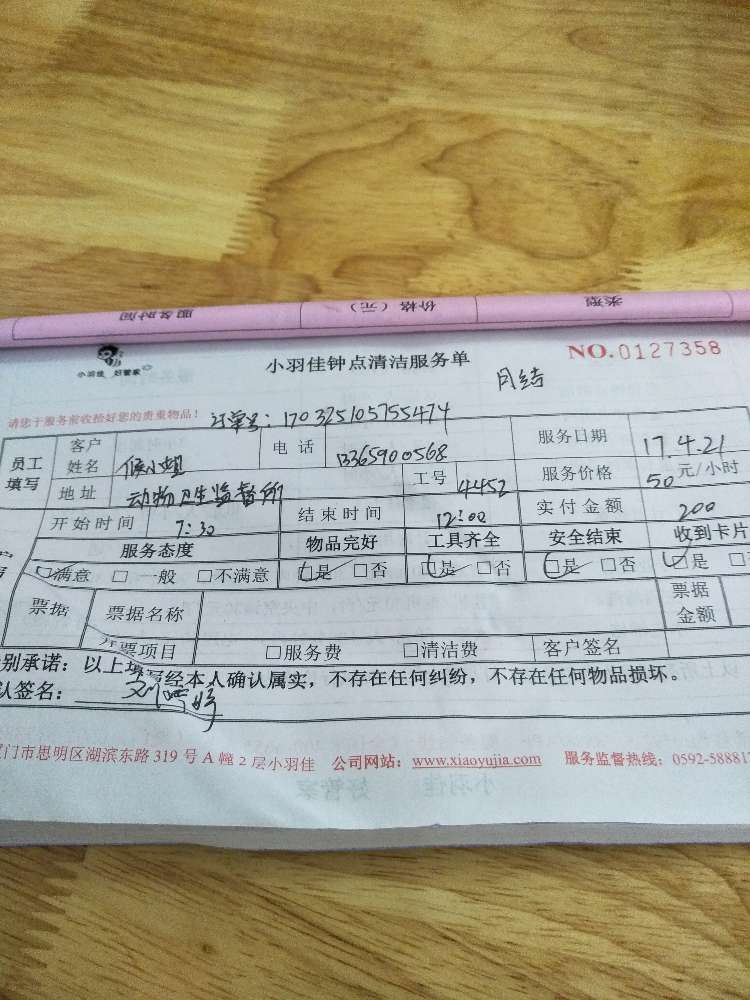 服务时间 价格（元） 类型
小羽佳 好管家
小羽佳钟点清洁服务单 NO.0127358
月结
请您于服务前收捂好您的贵重物品！ 订单号：170325105755474
员工填写 客户姓名 侯小姐 电话 13365900568 服务日期 17.4.21
地址 动物卫生监督所 工号 4452 服务价格 50元/小时
开始时间 7:30 结束时间 12:00 实付金额 200
服务态度 物品完好 工具齐全 安全结束 收到卡片
☑满意 □一般 □不满意 ☑是 □否 ☑是 □否 ☑是 □否 ☑是 □
票据 票据名称 票据金额
开票项目 □服务费 □清洁费 客户签名
别承诺：以上填写经本人确认属实，不存在任何纠纷，不存在任何物品损坏。
认签名：
门市思明区湖滨东路319号A幢2层小羽佳 公司网站：www.xiaoyujia.com 服务监督热线：0592-58881
小羽佳 好管家